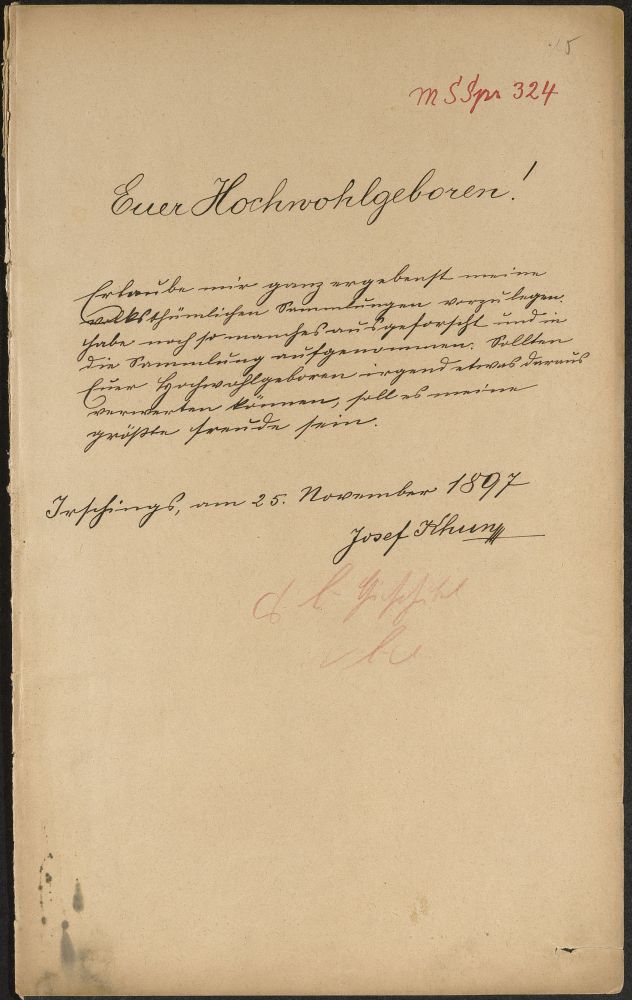 15
MS Spr 324
Euer Hochwohlgeboren!
Erlaube mir ganz ergebenst meine
volksthümlichen Sammlungen vorzulegen.
Habe noch so manches ausgeforscht und in
die Sammlung aufgenommen. Sollten
Euer Hochwohlgeboren irgend etwas daraus
verwerten können, soll es meine
größte Freude sein.
Irschings, am 25. November 1897
Josef Khun